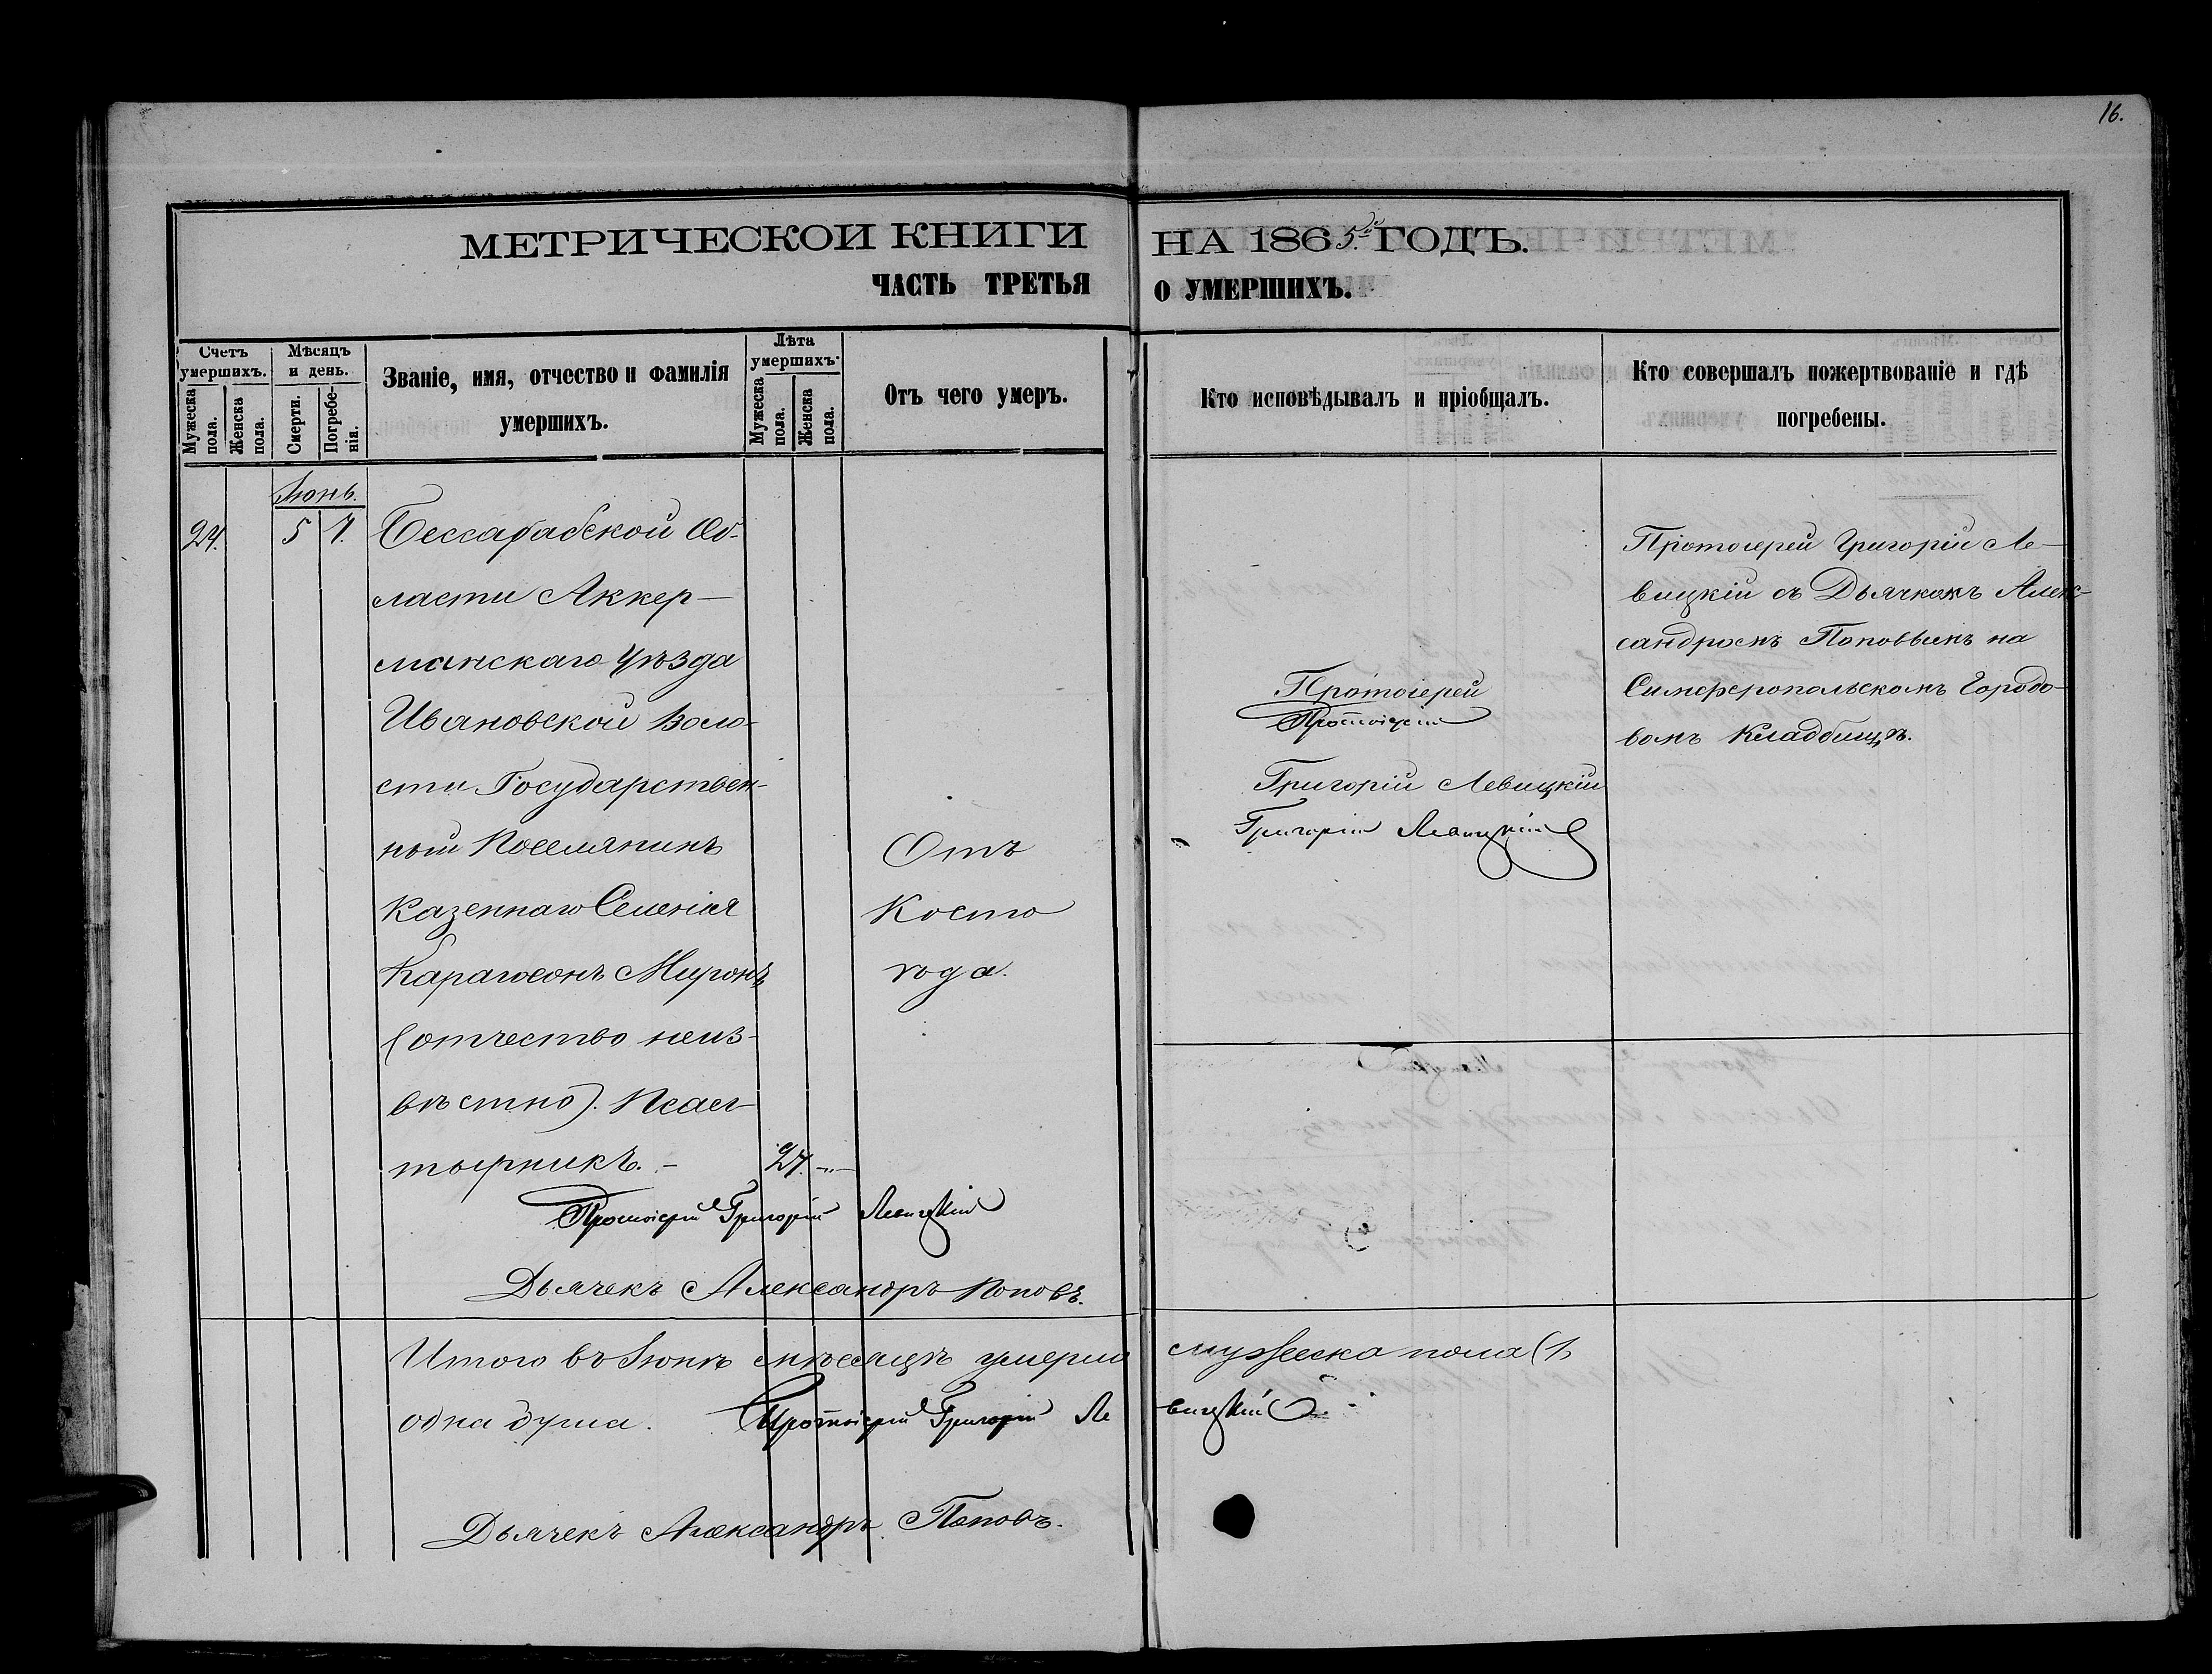 16.
МЕТРИЧЕСКОЙ КНИГИ НА 1865й ГОДЪ.
ЧАСТЬ ТРЕТЬЯ О УМЕРШИХЪ.
Счетъ умершихъ.
Мужеска пола.
Женска пола.
Мѣсяцъ и день.
Смерти.
Погребенія.
Званіе, имя, отчество и фамилія
умершихъ.
Лѣта умершихъ.
Мужеска пола.
Женска пола.
Отъ чего умеръ.
Кто исповѣдывалъ и пріобщалъ.
Кто совершалъ пожертвованіе и гдѣ
погребены.
Іюнь.
24. 5 7. Бессарабской Об-
ласти Аккер-
манскаго Уѣзда
Ивановской Воло-
сти Государствен-
ный Поселянинъ
Казеннаго Селенія
Миронъ
(отчество неиз-
вѣстно).
27.
Отъ
Косто
ѣда.
Протоіерей
Протоіерей
Григорій Левицкій
Григорій Левицкій
Протоіерей Григорій Ле-
вицкій съ Дьячкомъ Алек-
сандромъ Поповымъ на
Симферопольскомъ Городо-
вомъ Кладбищѣ.
Протоіерей Григорій Левицкій
Дьячекъ Александръ Поповъ.
Итого въ Іюнѣ мѣсяцѣ умерло мужеска пола (1,
одна душа. Протоіерей Григорій Левицкій
Дьячекъ Александръ Поповъ.